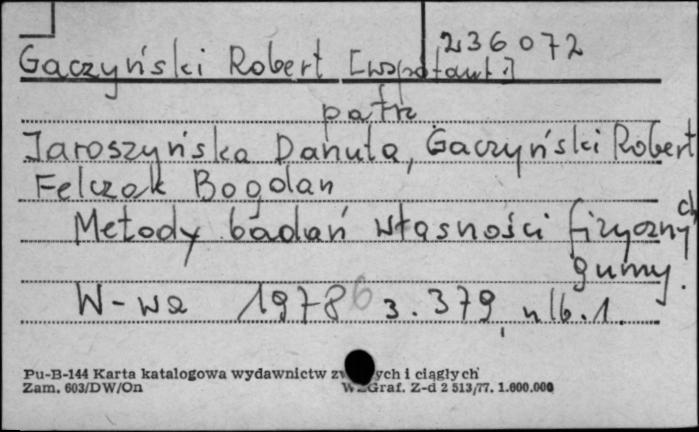 236072
Gaczyński Robert [współaut.]
patrz
Jaroszyńska Danuta, Gaczyński Robert
Felczak Bogdan
Metody badań własności fizycznych
gumy.
W-wa 1978 s. 379, nlb. 1.
Pu-B-144 Karta katalogowa wydawnictw zw ych i ciągłych
Zam. 603/DW/On WZGraf. Z-d 2 513/77. 1.000.000